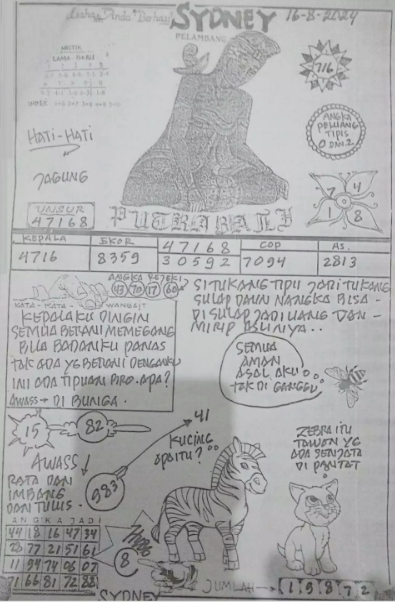 SYDNEY
16-8-2024
PELAMBANG
MISTIK
LAMA - BARU
716
HATI-HATI
JAGUNG
ANGKA
PELUANG
TIPIS
0 DAN 2
7 4
1 8
UNSUR
47168
PUTRABATH
KEPALA
EKOR
47168
COP
AS.
4716
8359
30592
7094
2813
ANGKA REJEKI
KATA - KATA WANGSIT
KEPALAKU DINGIN
SEMUA BERANI MEMEGANG
BILA BADANKU PANAS
TAK ADA YG BERANI DENGANKU
INI ADA TIPUAN BRO. APA?
AWASS → DI BUNGA.
SI TUKANG TIPU JADI TUKANG
SULAP DAUN NANGKA BISA
DI SULAP JADI UANG DAN
MIRIP ASLINYA..
SEMUA
AMAN
ASAL AKU
TAK DI GANGGU
15
82
41
983
AWASS!
RATA DAN
IMBANG
DAN TULUS.
KUCING
APA ITU?
ZEBRA ITU
TAWON YG
ADA SENJATA
DI PANTAT
ANGKA JADI
44 18 16 47 34
77 21 51 61
11 74 06 07
71 66 81 72 82
8
JUMLAH → 1 5 8 7 2
SYDNEY